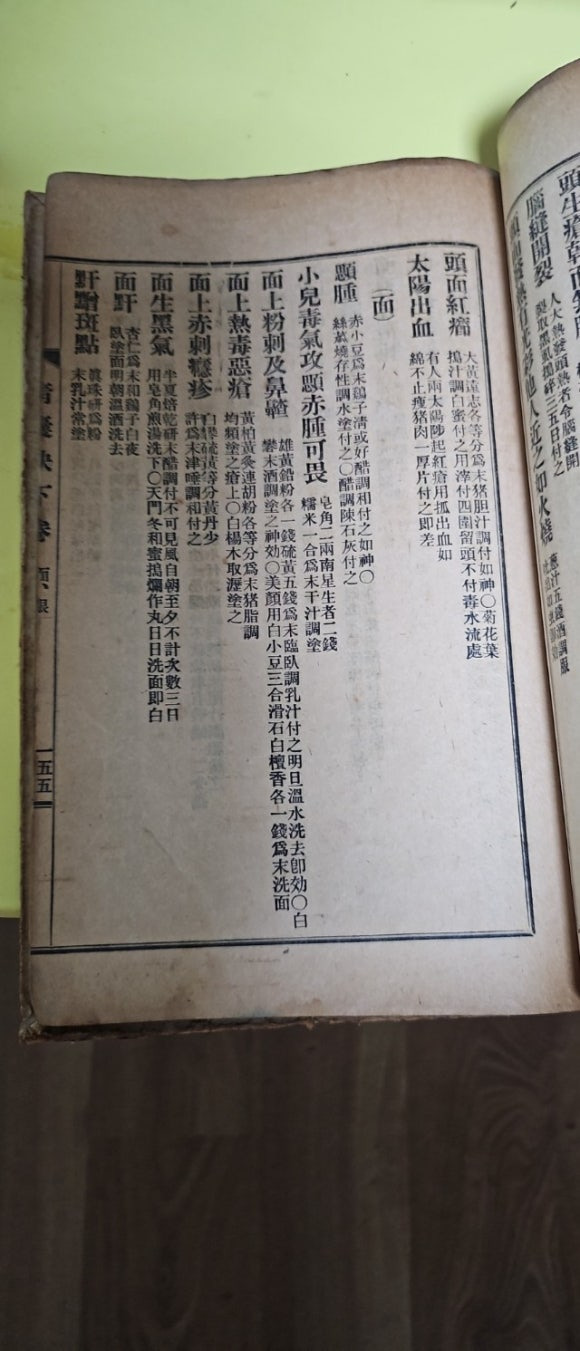 頭生瘡
腦縫開裂
人大熱發頭熱者令腦縫開
他人近之如火燒
頭面紅瘤
大黃遠志各等分爲末猪胆汁調付如神〇菊花葉
搗汁調白蜜付之用滓付四圍留頭不付毒水流處
太陽出血
有人兩太陽陟起紅瘡用抓出血如
綿不止瘦猪肉一厚片付之即差
(面)
顋腫
赤小豆爲末鷄子淸或好醋調和付之如神〇
絲瓜燒存性調水塗付之〇醋調陳石灰付之
小兒毒氣攻顋赤腫可畏
皂角二兩南星生者二錢
糯米一合爲末干汁調塗
面上粉刺及鼻齄
雄黃鉛粉各一錢硫黃五錢爲末臨臥調乳汁付之明旦溫水洗去卽効〇白
礬末酒調塗之神効〇美顏用白小豆三合滑石白檀香各一錢爲末洗面
面上熱毒惡瘡
黃柏黃灸連胡粉各等分爲末猪脂調
均頻塗之瘡上〇白楊木取瀝塗之
面上赤刺癮疹
白礬硫黃等分黃丹少
許爲末津唾調和付之
面生黑氣
半夏焙乾研末醋調付不可見風自朝至夕不計次數三日
用皂角煎湯洗下〇天門冬和蜜搗爛作丸日日洗面即白
面䵟
杏仁爲末和鷄子白夜
臥塗面明朝溫酒洗去
䵟䵳斑點
眞珠研爲粉
末乳汁常塗
下卷 面、眼
一五五